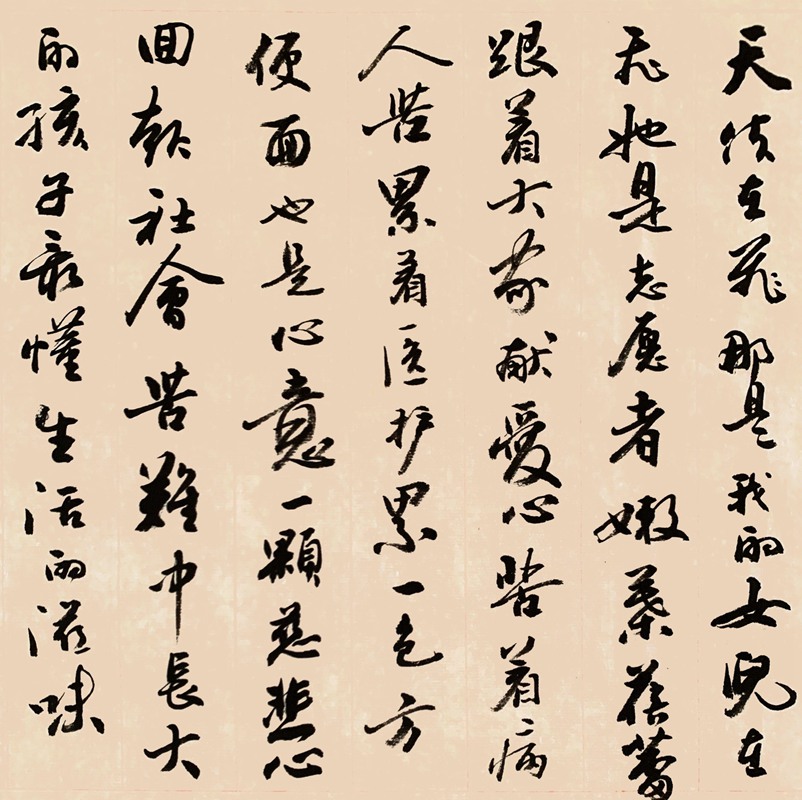 天使在飛那是我的女兒在
飛她是志愿者嫩葉蓓蕾
跟着大家献愛心苦着病
人苦累着医护累一包方
便面也是心意一顆慈悲心
回報社會苦難中長大
的孩子最懂生活的滋味